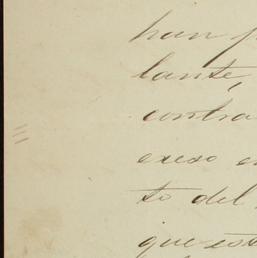 han
lante,
contra
exeso en
to del
que est